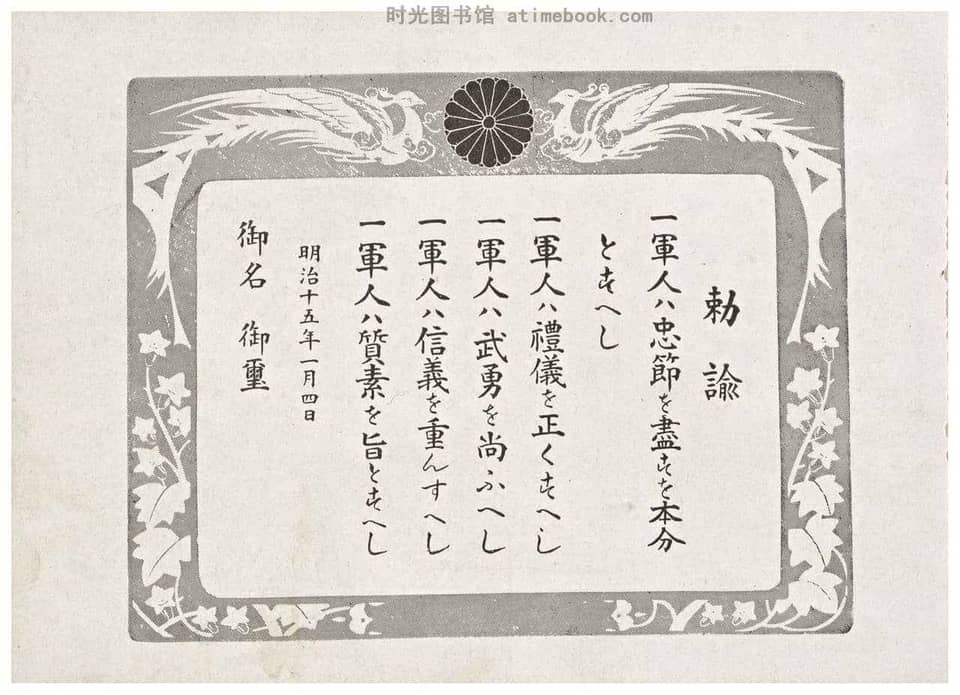 时光图书馆 atimebook.com
勅諭
一軍人ハ忠節を盡すを本分
とすへし
一軍人ハ禮儀を正くすへし
一軍人ハ武勇を尚ふへし
一軍人ハ信義を重んすへし
一軍人ハ質素を旨とすへし
明治十五年一月四日
御名 御璽